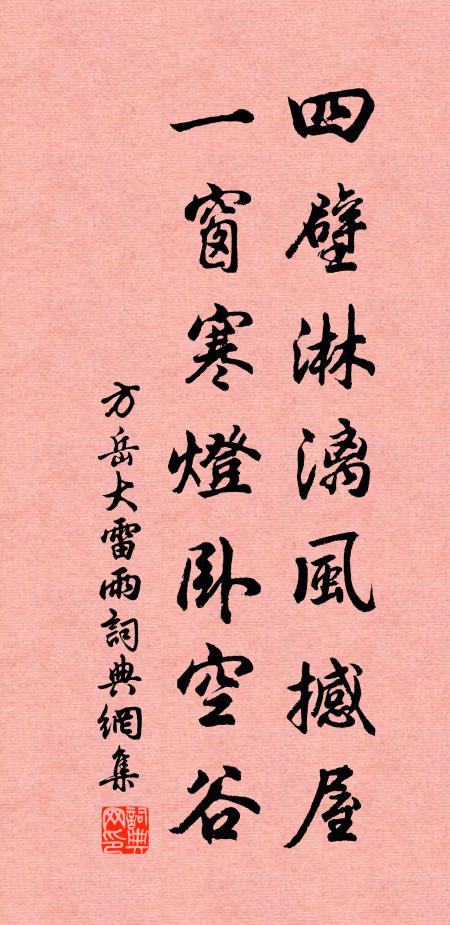 四壁淋漓風撼屋
一窗寒燈卧空谷
方岳大雷雨詞典網集
詞典網印